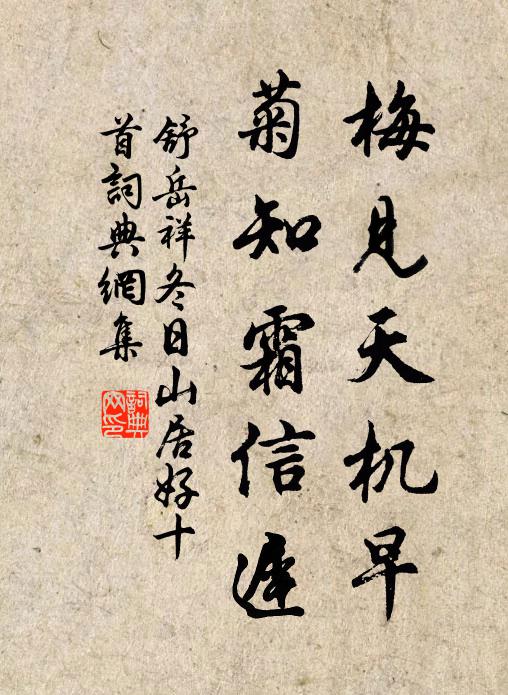 梅見天机早
菊知霜信遲
舒岳祥冬日山居好十
首詞典網集
詞典
网印